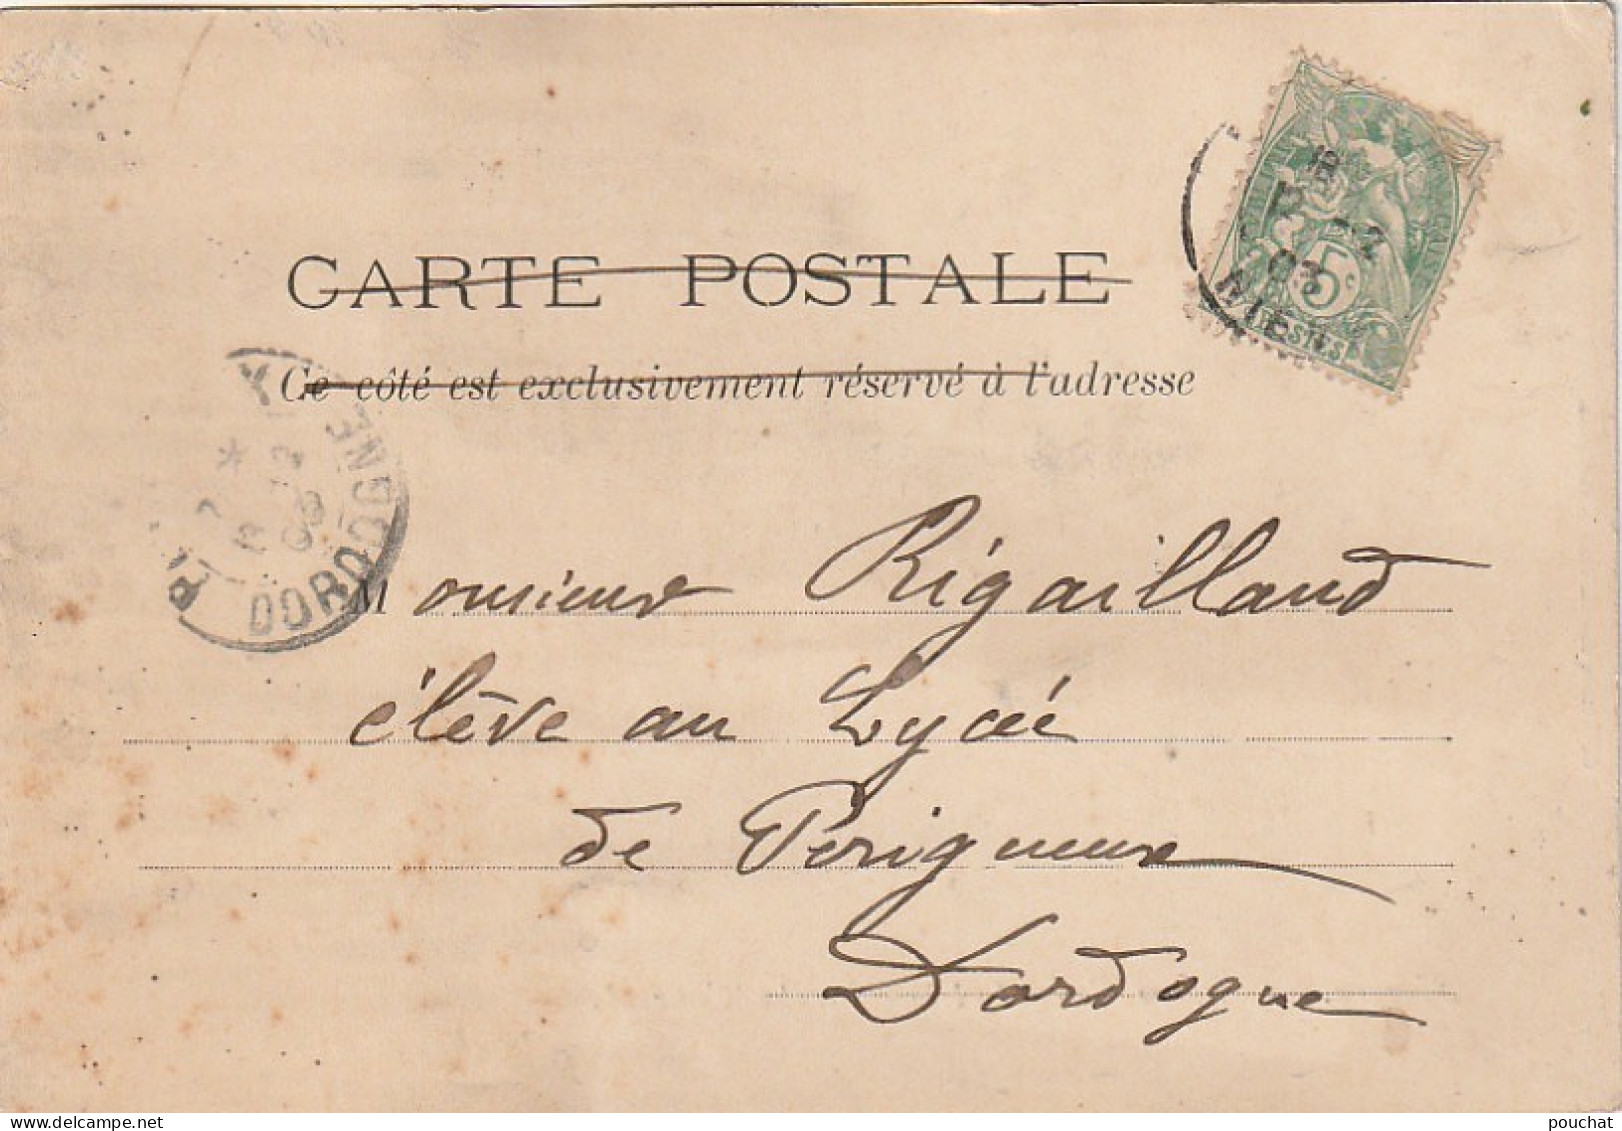 CARTE POSTALE
Ce côté est exclusivement réservé à l'adresse
5c
POSTES
03
DORDOGNE
03
Monsieur Rigailland
élève au Lycée
de Périgueux
Dordogne
pouchat